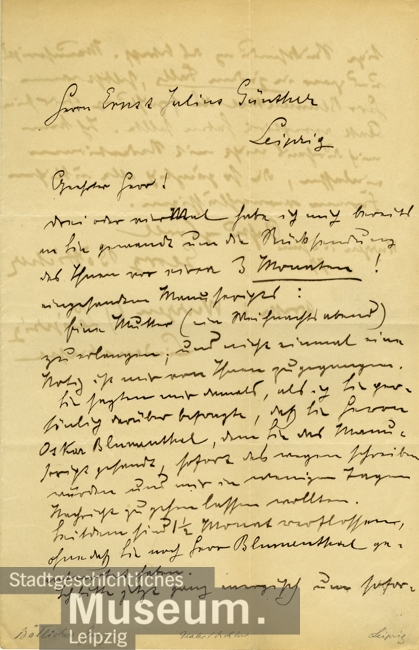 Herrn Ernst Julius Günther
Leipzig
Geehrter Herr!
Drei oder vier Mal habe ich mich bereits
an Sie gewandt um die Rücksendung
des Ihnen vor circa 3 Monaten!
eingesandten Manuscripts:
Eine Mutter (ein Weihnachtsabend)
zu erlangen; und nicht einmal eine
Notiz ist mir von Ihnen zugegangen.
Sie sagten mir damals, als ich Sie per-
sönlich darüber befragte, daß Sie Herrn
Oskar Blumenthal, dem Sie das Manu-
script gesandt, sofort deswegen schreiben
würden und mir in wenigen Tagen
Nachricht zugehen lassen wollten.
Seitdem sind 1½ Monat verflossen,
ohne daß Sie noch Herr Blumenthal ge-
Ich bitte jetzt ganz um sofor-
Stadtgeschichtliches
Museum.
Leipzig
Leipzig